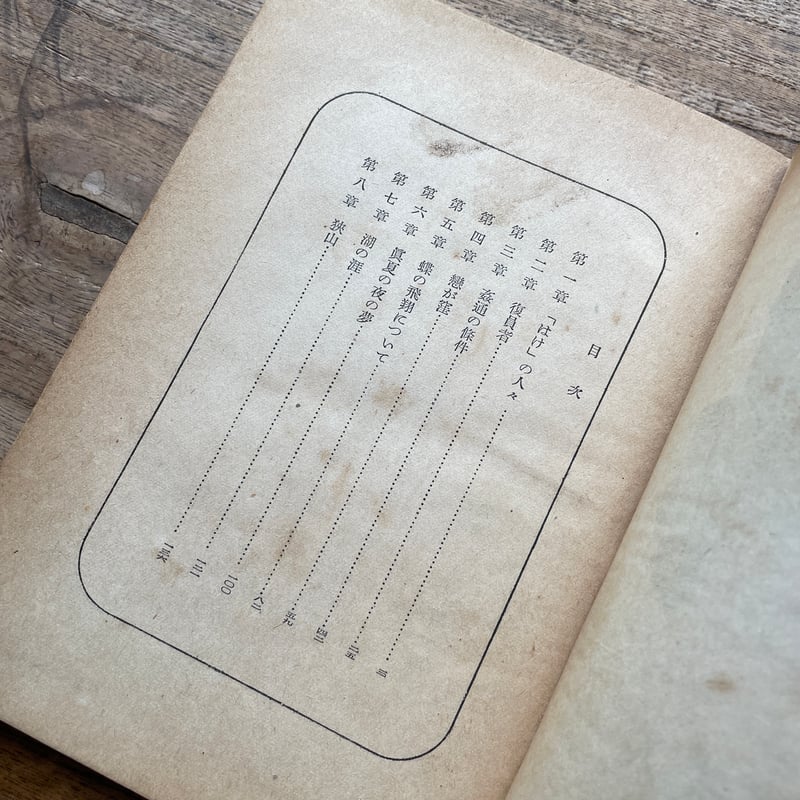 目次
第一章 「はけ」の人々……三
第二章 復員者……二五
第三章 姦通の條件……四二
第四章 戀が窪……五九
第五章 蝶の飛翔について……八二
第六章 眞夏の夜の夢……一〇〇
第七章 湖の涯……
第八章 狹山……一三六